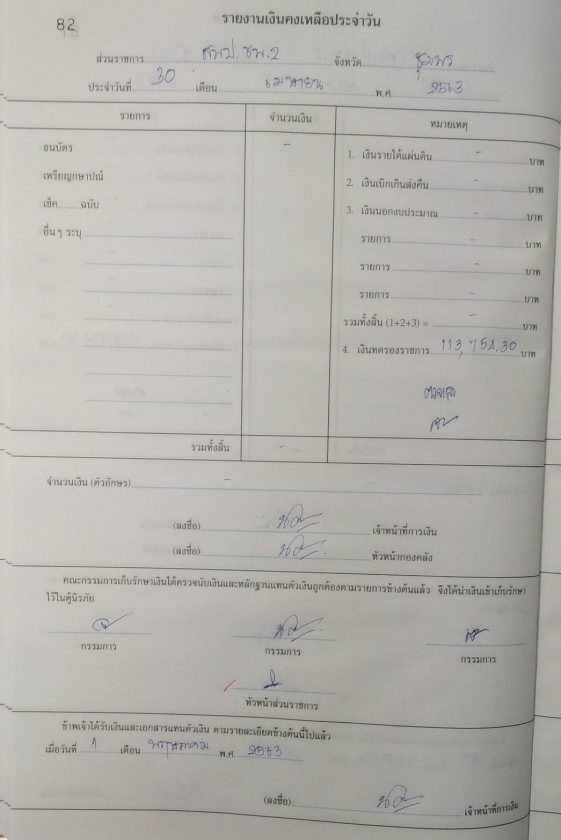 82
รายงานเงินคงเหลือประจำวัน
ส่วนราชการ สพป.ชพ.2 จังหวัด ชุมพร
ประจำวันที่ 30 เดือน เมษายน พ.ศ. 2563
รายการ จำนวนเงิน หมายเหตุ
ธนบัตร - 1. เงินรายได้แผ่นดิน - บาท
เหรียญกษาปณ์ 2. เงินเบิกเกินส่งคืน - บาท
เช็ค ฉบับ 3. เงินนอกงบประมาณ - บาท
อื่น ๆ ระบุ รายการ - บาท
รายการ - บาท
รายการ - บาท
รวมทั้งสิ้น (1+2+3) = - บาท
4. เงินทดรองราชการ 113,754.30 บาท
ตรวจแล้ว
รวมทั้งสิ้น - -
จำนวนเงิน (ตัวอักษร) -
(ลงชื่อ) เจ้าหน้าที่การเงิน
(ลงชื่อ) หัวหน้ากองคลัง
คณะกรรมการเก็บรักษาเงินได้ตรวจนับเงินและหลักฐานแทนตัวเงินถูกต้องตามรายการข้างต้นแล้ว จึงได้นำเงินเข้าเก็บรักษา
ไว้ในตู้นิรภัย
กรรมการ กรรมการ กรรมการ
หัวหน้าส่วนราชการ
ข้าพเจ้าได้รับเงินและเอกสารแทนตัวเงิน ตามรายละเอียดข้างต้นนี้ไปแล้ว
เมื่อวันที่ 1 เดือน พฤษภาคม พ.ศ. 2563
(ลงชื่อ) เจ้าหน้าที่การเงิน